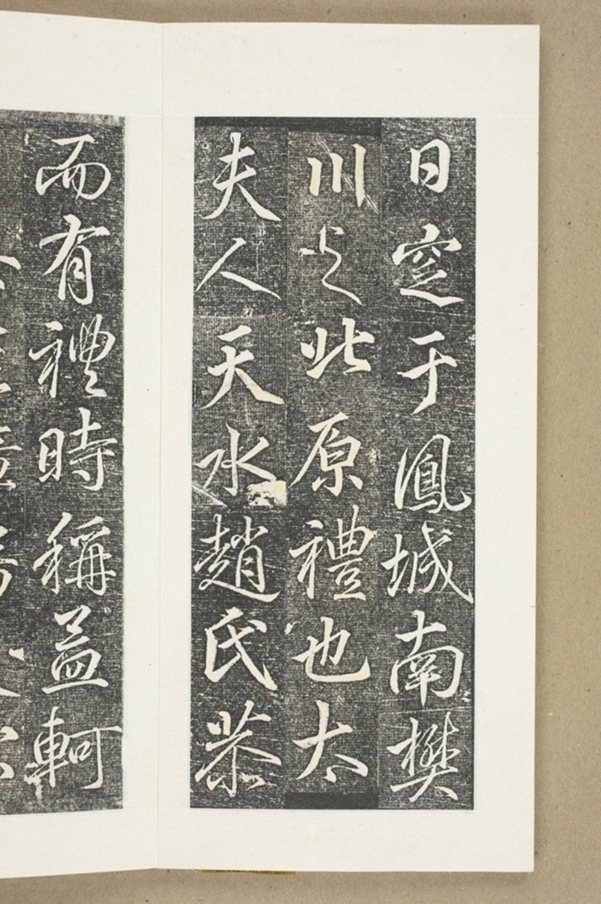 日窆于鳳城南樊
川之北原禮也太
夫人天水趙氏恭
而有禮時稱益軻